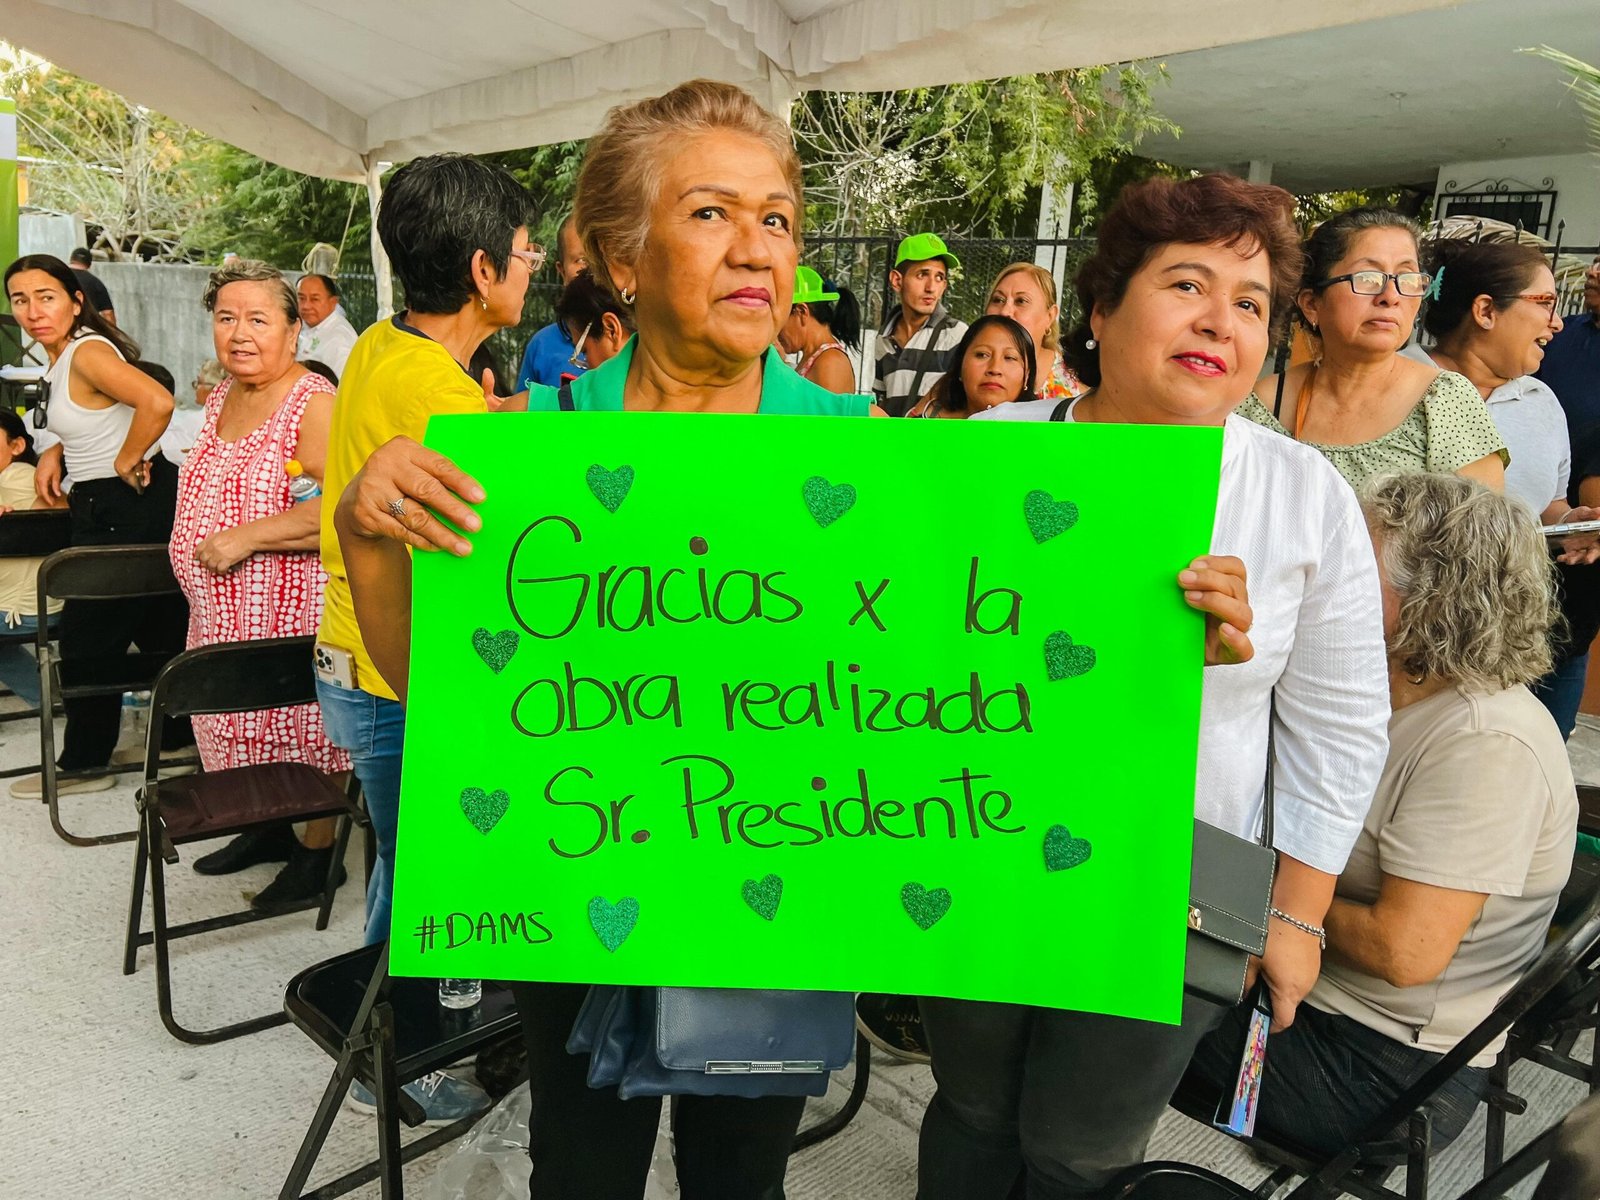 Gracias x la
obra realizada
Sr. Presidente
#DAMS